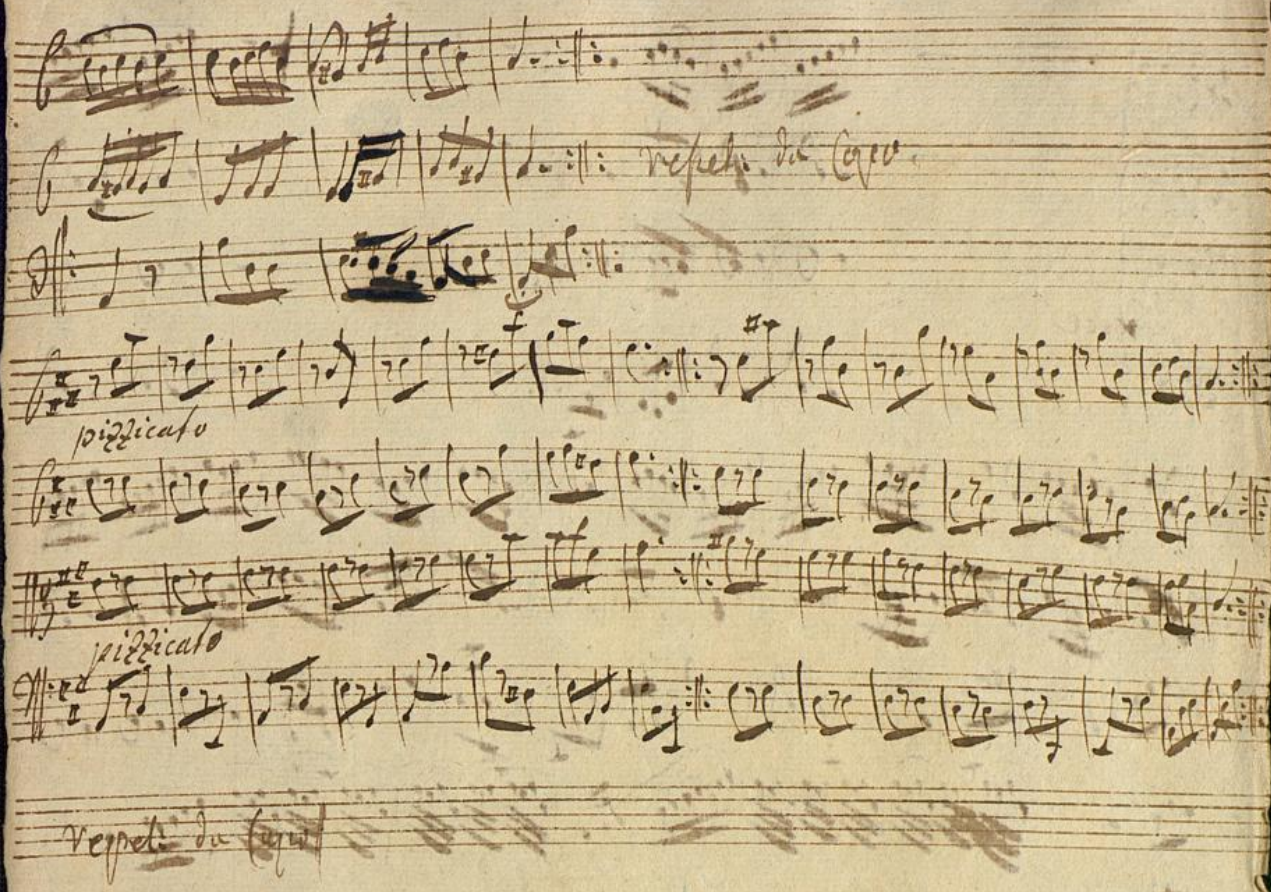 repet: da Capo.
pizzicato
pizzicato
Reppet: da Capo